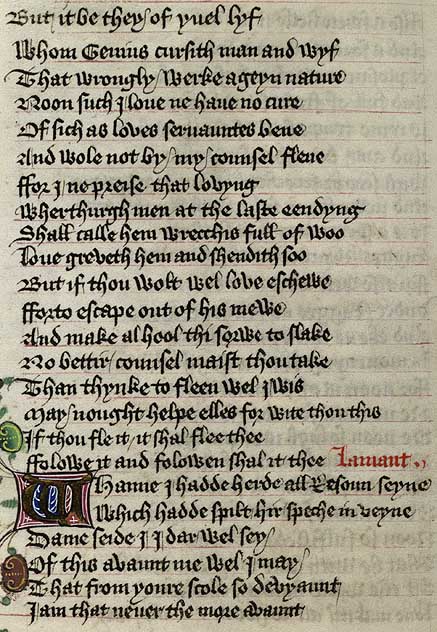 But it be they of yuel lyf
Whom Genius cursith man and wyf
That wrongly werke ageyn nature
Noon such I love ne haue no cure
Of sich as loves seruauntes bene
And wole not by my counsel flene
ffor I ne preise that lovyng
Wherthurgh men at the laste eendyng
Shall calle hem wrecchis full of woo
Loue greveth hem and shendith soo
But if thou wolt wel love eschewe
fforto escape out of his mewe
And make al hool thi sorwe to slake
No bettir counsel maist thou take
Than thynke to fleen wel iwis
May nought helpe elles for wite thou this
If thou fle it it shal flee thee
ffolowe it and folowen shal it thee Lamant
Whanne I hadde herde all Resoun seyne
Which hadde spilt hir speche in veyne
Dame seide I I dar wel sey
Of this avaunt me wel I may
That from youre scole so devyaunt
I am that neuer the more avaunt